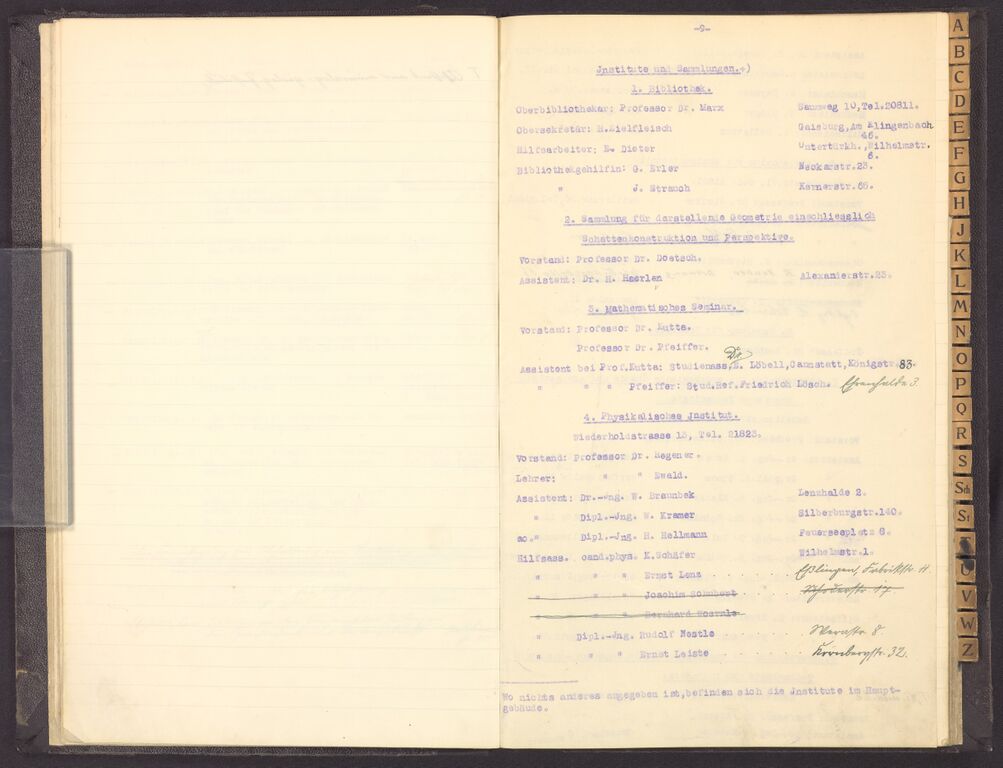 -9-
Jnstitute und Sammlungen.+)
1. Bibliothek.
Oberbibliothekar: Professor Dr. Marx Saumweg 10, Tel. 20811.
Obersekretär: H. Zielfleisch Gaisburg, Am Klingenbach
46.
Hilfsarbeiter: E. Dieter Untertürkh., Wilhelmstr.
6.
Bibliothekgehilfin: G. Erler Neckarstr. 23.
" J. Strauch Kernerstr. 66.
2. Sammlung für darstellende Geometrie einschliesslich
Schattenkonstruktion und Perspektive.
Vorstand: Professor Dr. Doetsch.
Assistent: Dr. H. Haerlen Alexanderstr. 23.
3. Mathematisches Seminar.
Vorstand: Professor Dr. Kutta.
Professor Dr. Pfeiffer.
Dr.
Assistent bei Prof. Kutta: Studienass. Löbell, Cannstatt, Königstr. 83.
" " " Pfeiffer: Stud. Ref. Friedrich Lösch. Ehrenhalde 3.
4. Physikalisches Jnstitut.
Wiederholdstrasse 13, Tel. 21823.
Vorstand: Professor Dr. Regener.
Lehrer: " " Ewald.
Assistent: Dr.-Jng. W. Braunbek Lenzhalde 2.
" Dipl.-Jng. W. Kramer Silberburgstr. 140.
ao. " Dipl.-Jng. H. Hellmann Feuerseeplatz 8.
Hilfsass. cand.phys. K. Schäfer Wilhelmstr. 1.
" " " Ernst Lenz Eßlingen, Fabrikstr. 11.
" " " Joachim Schubert
" " " Bernhard
" Dipl.-Jng. Rudolf Nestle Werastr. 8.
" " " Ernst Leiste Kornbergstr. 32.
Wo nichts anderes angegeben ist, befinden sich die Jnstitute im Haupt-
gebäude.
A
B
C
D
E
F
G
H
J
K
L
M
N
O
P
Q
R
S
Sch
St
U
V
W
Z